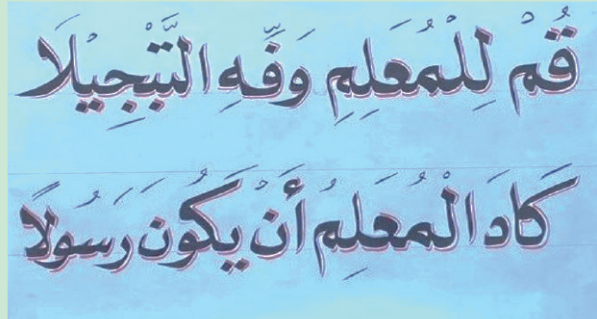 قُمْ لِلْمُعَلِمِ وَفِّهِ التَّبْجِيْلَا
كَادَ الْمُعَلِمُ أَنْ يَكُونَ رَسُولًا